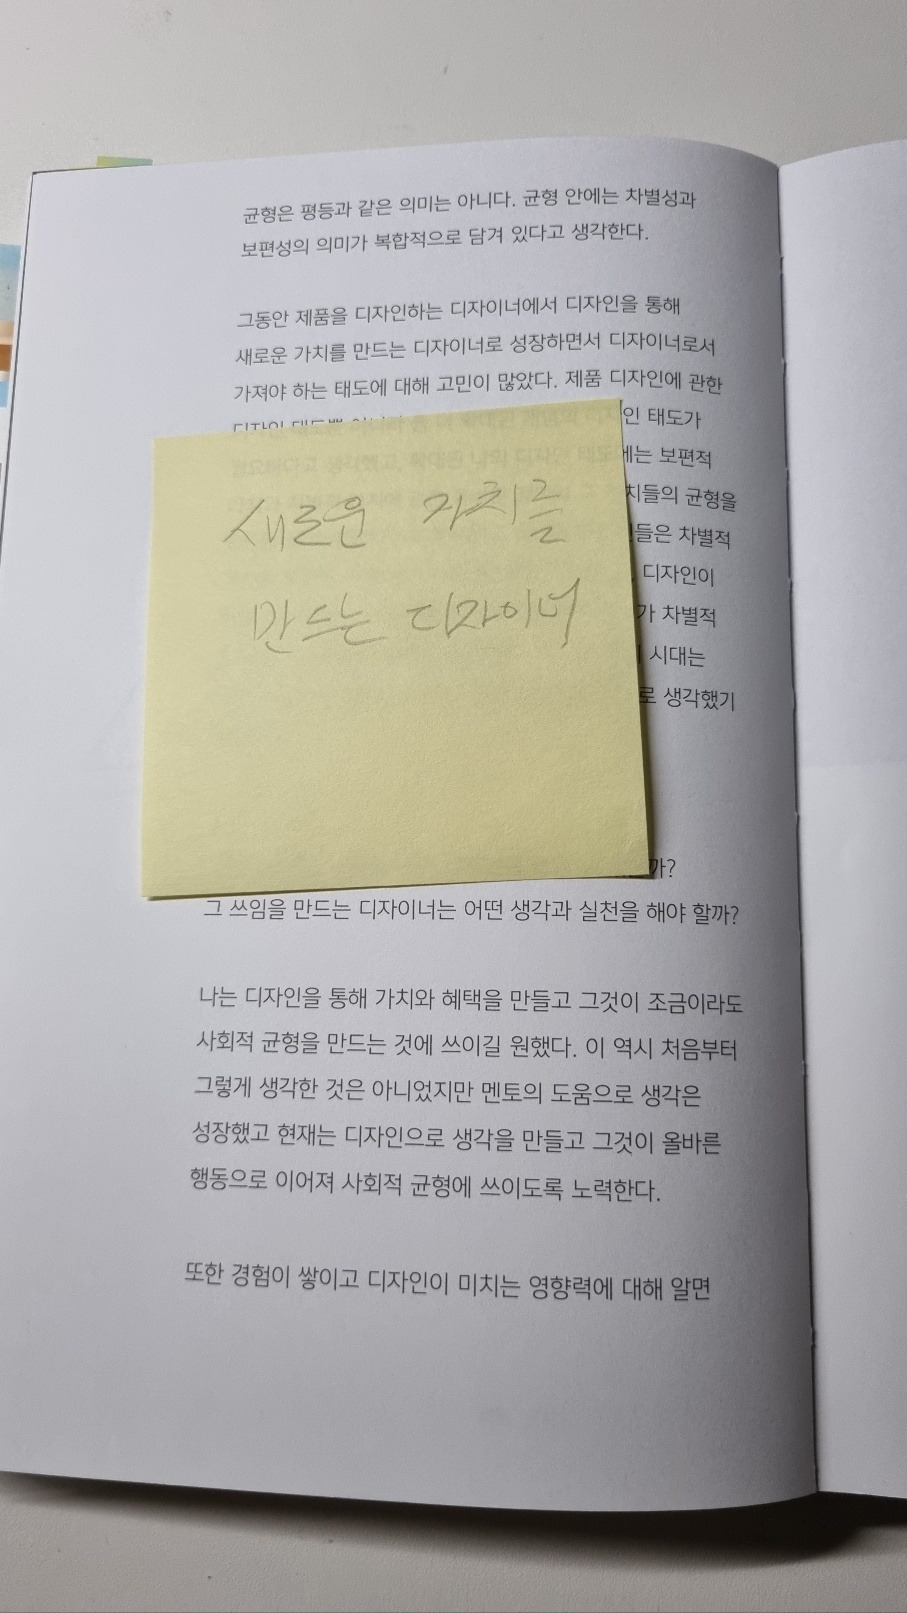 균형은 평등과 같은 의미는 아니다. 균형 안에는 차별성과
보편성의 의미가 복합적으로 담겨 있다고 생각한다.
그동안 제품을 디자인하는 디자이너에서 디자인을 통해
새로운 가치를 만드는 디자이너로 성장하면서 디자이너로서
가져야 하는 태도에 대해 고민이 많았다. 제품 디자인에 관한
디자인 인 태도가
에는 보편적
치들의 균형을
들은 차별적
디자인이
가 차별적
시대는
로 생각했기
새로운 가치를
만드는 디자이너
까?
그 쓰임을 만드는 디자이너는 어떤 생각과 실천을 해야 할까?
나는 디자인을 통해 가치와 혜택을 만들고 그것이 조금이라도
사회적 균형을 만드는 것에 쓰이길 원했다. 이 역시 처음부터
그렇게 생각한 것은 아니었지만 멘토의 도움으로 생각은
성장했고 현재는 디자인으로 생각을 만들고 그것이 올바른
행동으로 이어져 사회적 균형에 쓰이도록 노력한다.
또한 경험이 쌓이고 디자인이 미치는 영향력에 대해 알면